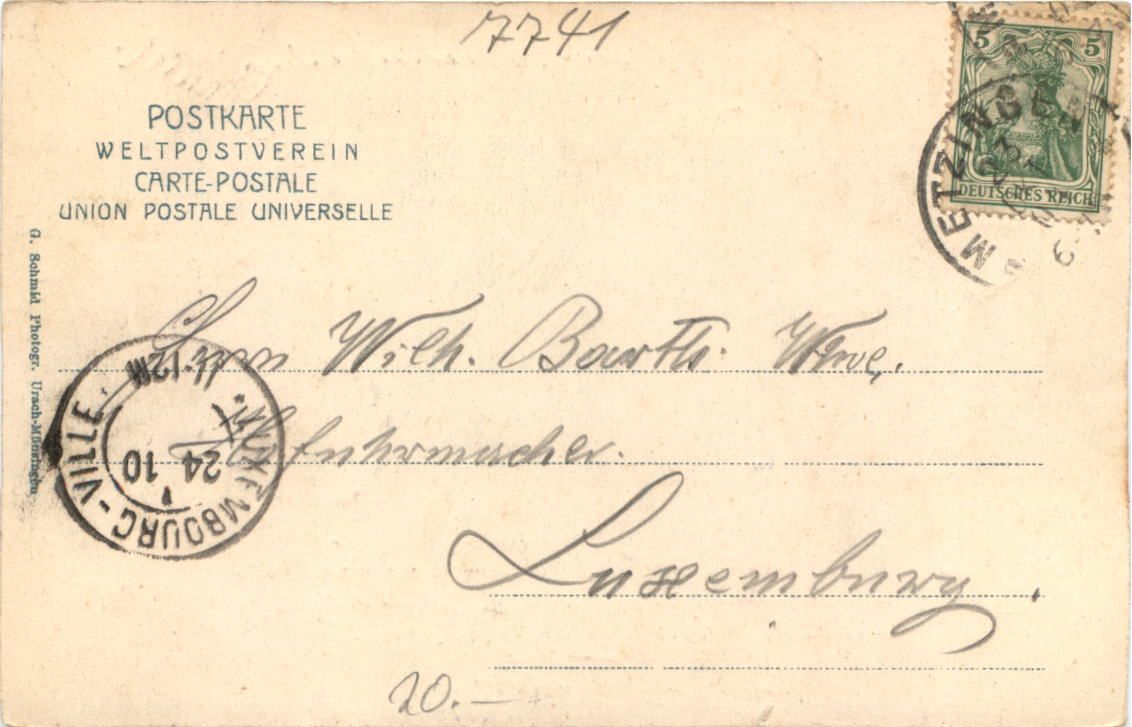 7741
5 5
DEUTSCHES REICH
METZINGEN
23
POSTKARTE
WELTPOSTVEREIN
CARTE-POSTALE
UNION POSTALE UNIVERSELLE
G. Schmid Photogr. Urach-Münsingen
Herrn Wilh. Barth. Wwe,
Hofuhrmacher.
Luxemburg.
LUXEMBOURG-VILLE.
11-12M
24
10
20.—